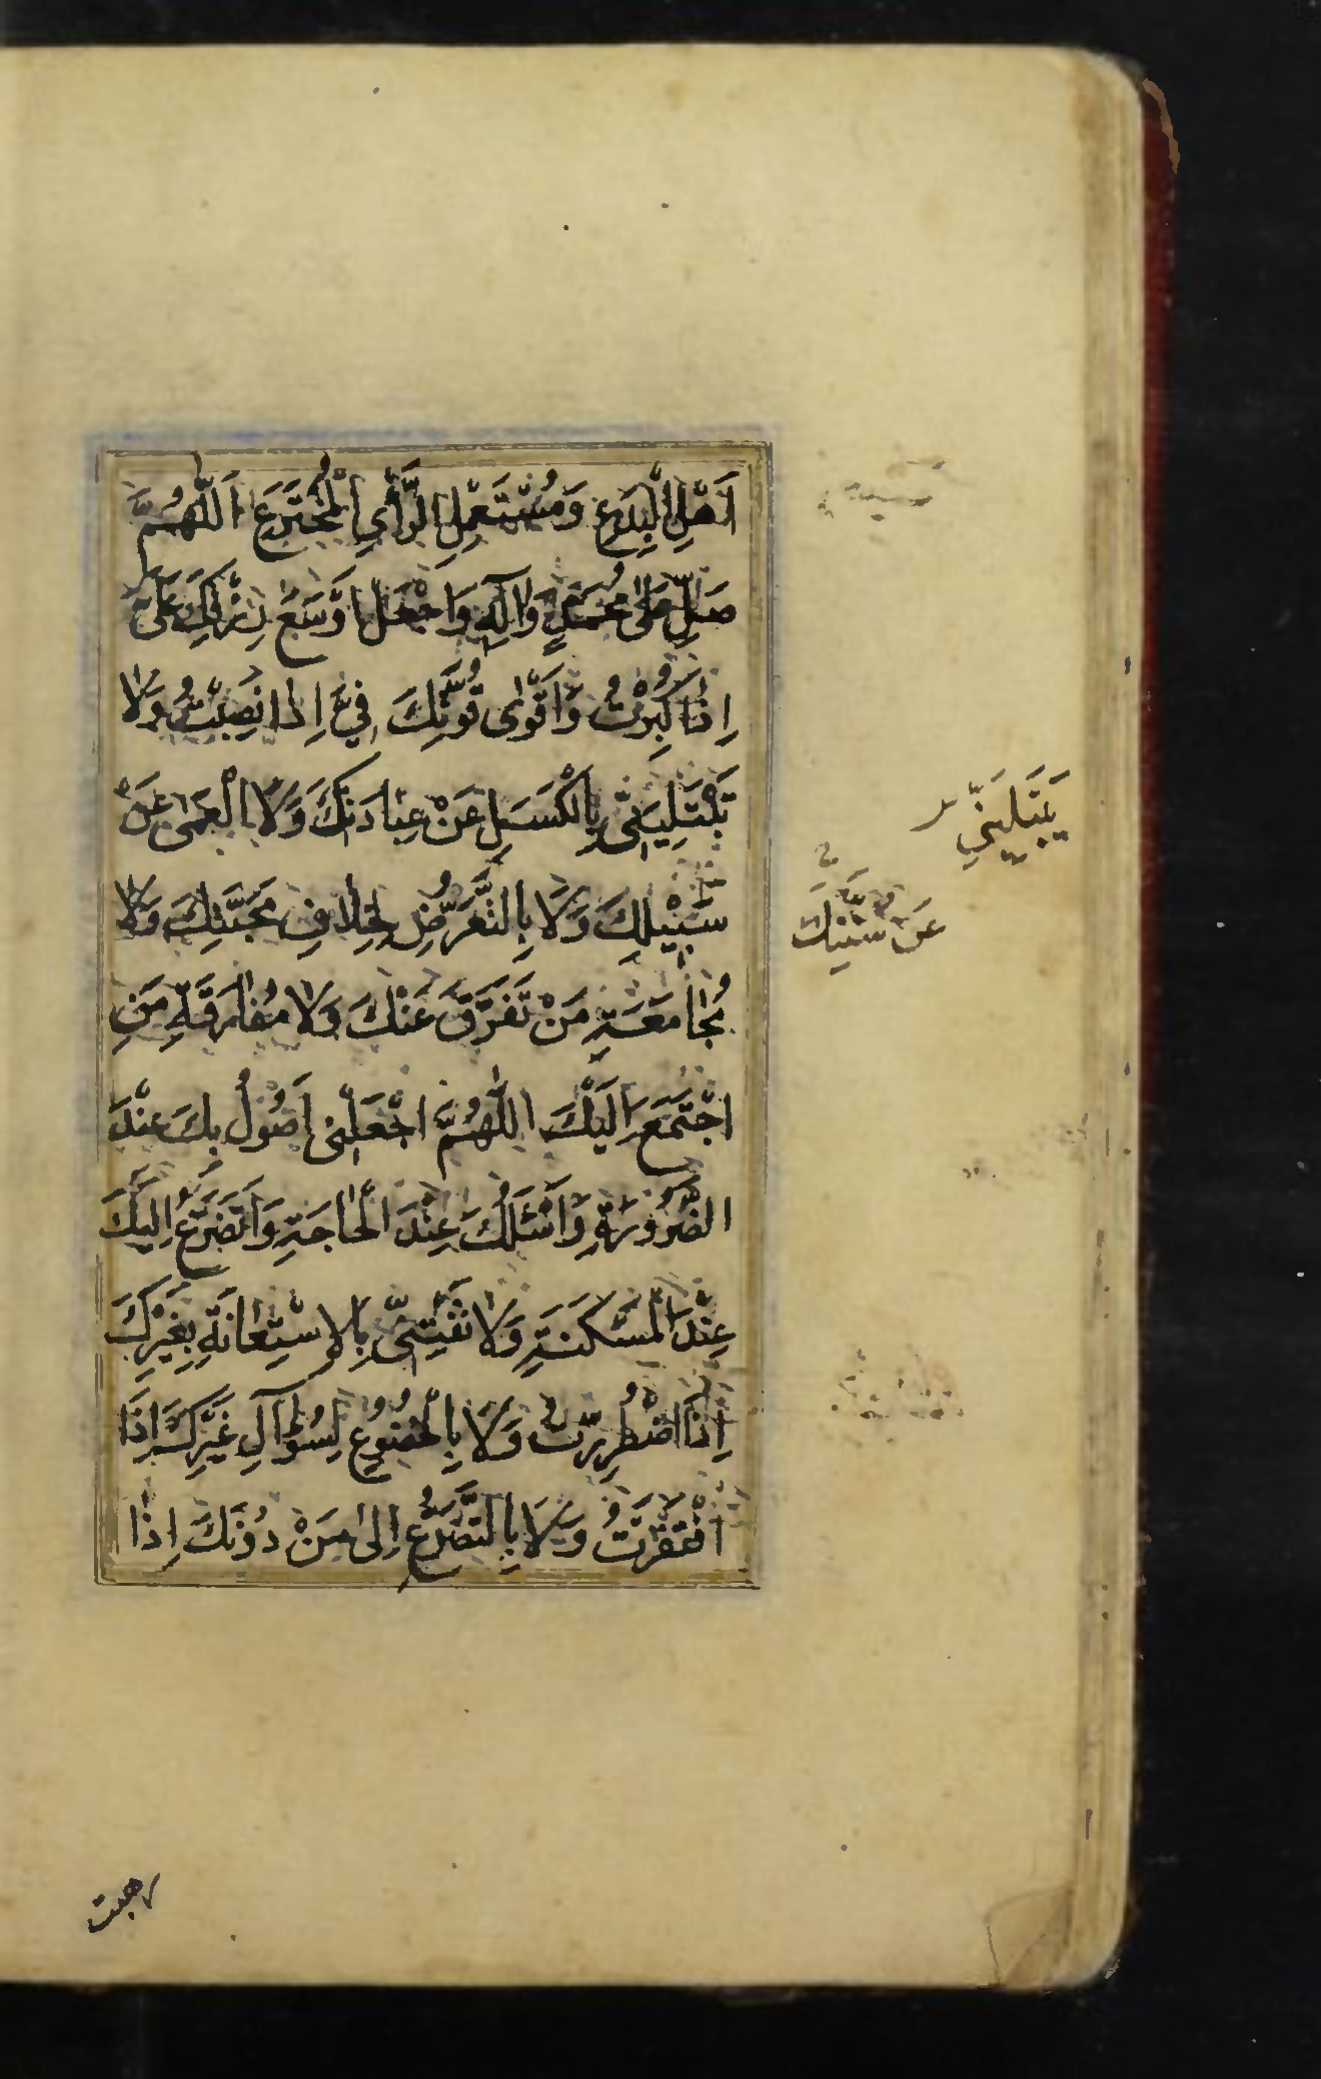 اَهْلِ الْبِدَعِ وَمُسْتَعْمِلِ الرَّأْيِ الْمُخْتَرَعِ اَللّٰهُمَّ
صَلِّ عَلٰى مُحَمَّدٍ وَاٰلِهِ وَاجْعَلْ اَوْسَعَ رِزْقِكَ عَلَيَّ
اِذَا كَبِرْتُ وَاَقْوٰى قُوَّتِكَ فِيَّ اِذَا نَصِبْتُ وَلَا
تَبْتَلِيَنّٖى بِالْكَسَلِ عَنْ عِبَادَتِكَ وَلَا الْعَمٰى عَنْ
سَبٖيْلِكَ وَلَا بِالتَّعَرُّضِ لِخِلَافِ مَحَبَّتِكَ وَلَا
مُجَامَعَةِ مَنْ تَفَرَّقَ عَنْكَ وَلَا مُفَارَقَةِ مَنِ
اجْتَمَعَ اِلَيْكَ اللّٰهُمَّ اجْعَلْنٖى اَصُوْلُ بِكَ عِنْدَ
الضَّرُوْرَةِ وَاَسْئَلُكَ عِنْدَ الْحَاجَةِ وَاَتَضَرَّعُ اِلَيْكَ
عِنْدَ الْمَسْكَنَةِ وَلَا تَفْتِنّٖى بِالْاِسْتِعَانَةِ بِغَيْرِكَ
اِذَا اضْطُرِرْتُ وَلَا بِالْخُضُوْعِ لِسُؤٰالِ غَيْرِكَ اِذَا
افْتَقَرْتُ وَلَا بِالتَّضَرُّعِ اِلٰى مَنْ دُوْنَكَ اِذَا
عَنْ سُنَنِكَ
رهبت